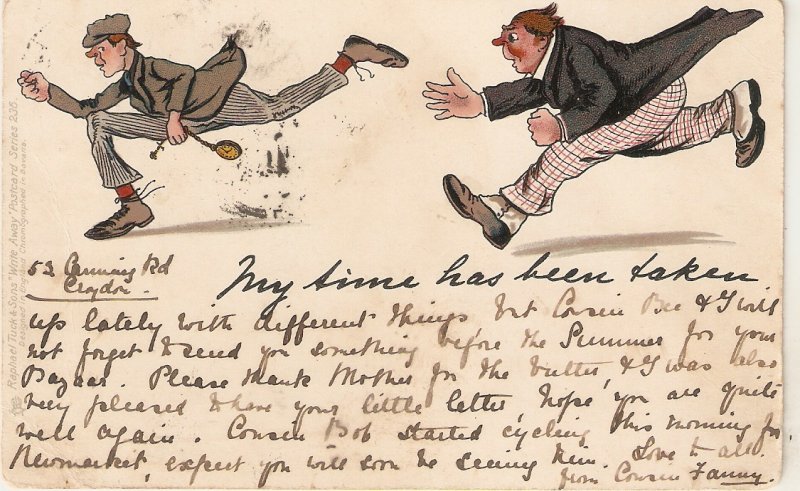 53 Canning Rd
Croydon.
My time has been taken
up lately with different things but Cousin Bee & I will
not forget to send you something before the Summer for your
Bazaar. Please thank Mother for the butter & I was also
very pleased to have your little letter, hope you are quite
well again. Cousin Bob started cycling this morning for
Newmarket, expect you will soon be seeing him. Love to all.
from Cousin Fanny.
Raphael Tuck & Sons' "Write Away" Postcard Series 236.
Designed in England Chromographed in Bavaria.